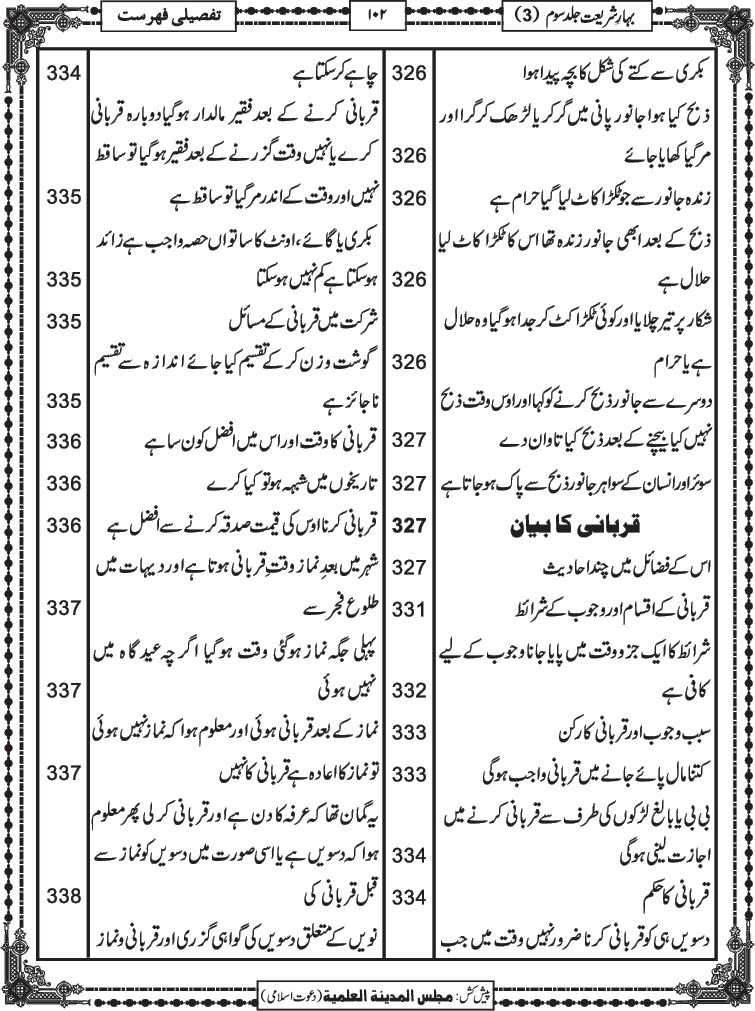 بہارِ شریعت جلد سوم (3)
۱۰۲
تفصیلی فہرست
بکری سے کتے کی شکل کا بچہ پیدا ہوا 326
ذبح کیا ہوا جانور پانی میں گر کر یا لڑھک کر گرا اور
مر گیا کھایا جائے 326
زندہ جانور سے جو ٹکڑا کاٹ لیا گیا حرام ہے 326
ذبح کے بعد ابھی جانور زندہ تھا اس کا ٹکڑا کاٹ لیا
حلال ہے 326
شکار پر تیر چلایا اور کوئی ٹکڑا کٹ کر جدا ہوگیا وہ حلال
ہے یا حرام 326
دوسرے سے جانور ذبح کرنے کو کہا اور اوس وقت ذبح
نہیں کیا بیچنے کے بعد ذبح کیا تاوان دے 327
سوئر اور انسان کے سوا ہر جانور ذبح سے پاک ہوجاتا ہے 327
قربانی کا بیان 327
اس کے فضائل میں چند احادیث 327
قربانی کے اقسام اور وجوب کے شرائط 331
شرائط کا ایک جزو وقت میں پایا جانا وجوب کے لیے
کافی ہے 332
سبب وجوب اور قربانی کا رکن 333
کتنا مال پائے جانے میں قربانی واجب ہوگی 333
بی بی یا بالغ لڑکوں کی طرف سے قربانی کرنے میں
اجازت لینی ہوگی 334
قربانی کا حکم 334
دسویں ہی کو قربانی کرنا ضرور نہیں وقت میں جب
چاہے کرسکتا ہے 334
قربانی کرنے کے بعد فقیر مالدار ہوگیا دوبارہ قربانی
کرے یا نہیں وقت گزرنے کے بعد فقیر ہوگیا تو ساقط
نہیں اور وقت کے اندر مر گیا تو ساقط ہے 335
بکری یا گائے، اونٹ کا ساتواں حصہ واجب ہے زائد
ہوسکتا ہے کم نہیں ہوسکتا 335
شرکت میں قربانی کے مسائل 335
گوشت وزن کر کے تقسیم کیا جائے اندازہ سے تقسیم
ناجائز ہے 335
قربانی کا وقت اور اس میں افضل کون سا ہے 336
تاریخوں میں شبہہ ہو تو کیا کرے 336
قربانی کرنا اوس کی قیمت صدقہ کرنے سے افضل ہے 336
شہر میں بعدِ نماز وقتِ قربانی ہوتا ہے اور دیہات میں
طلوع فجر سے 337
پہلی جگہ نماز ہوگئی وقت ہوگیا اگرچہ عیدگاہ میں
نہیں ہوئی 337
نماز کے بعد قربانی ہوئی اور معلوم ہوا کہ نماز نہیں ہوئی
تو نماز کا اعادہ ہے قربانی کا نہیں 337
یہ گمان تھا کہ عرفہ کا دن ہے اور قربانی کر لی پھر معلوم
ہوا کہ دسویں ہے یا اسی صورت میں دسویں کو نماز سے
قبل قربانی کی 338
نویں کے متعلق دسویں کی گواہی گزری اور قربانی و نماز
پیش کش: مجلس المدینۃ العلمیۃ (دعوتِ اسلامی)